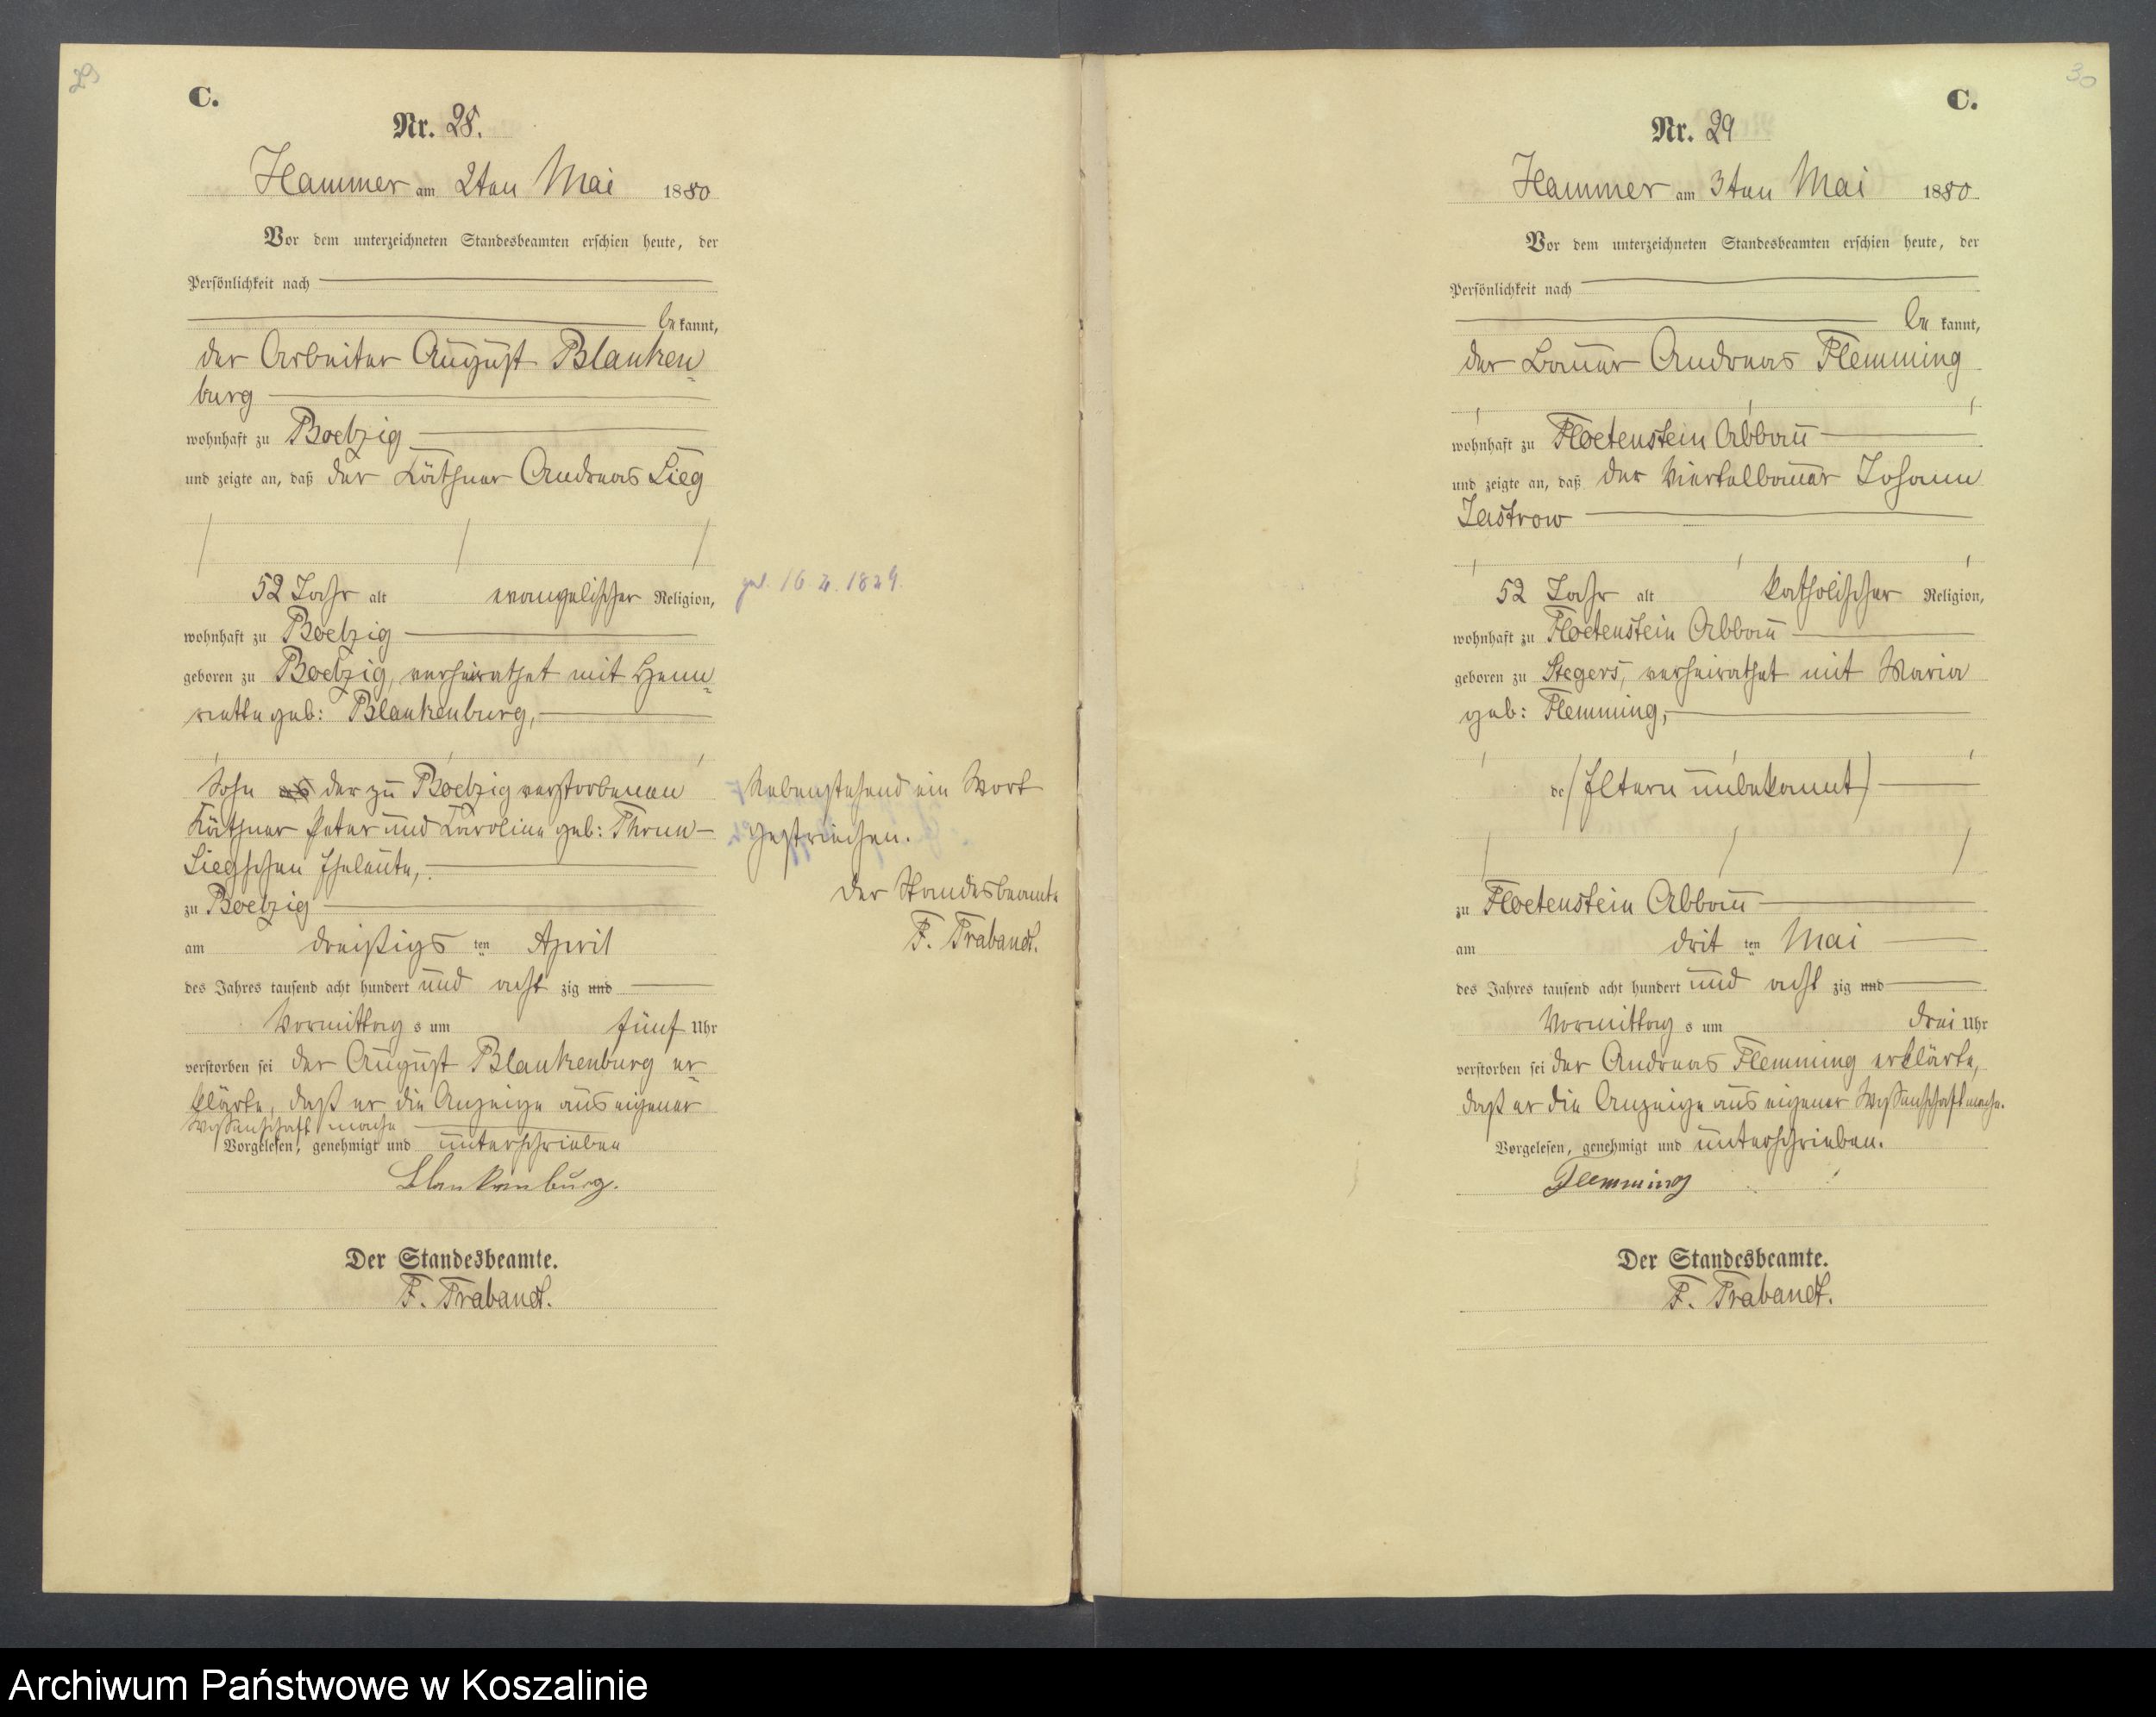 29
C.
Nr. 28.
Hammer am 2ten Mai 1880
Vor dem unterzeichneten Standesbeamten erschien heute, der
Persönlichkeit nach
be kannt,
der Arbeiter August Blanken
burg
wohnhaft zu Boelzig
und zeigte an, daß der Käthner Andreas Sieg
52 Jahr alt evangelischer Religion,
wohnhaft zu Boelzig
geboren zu Boelzig, verheirathet mit Henn
riette geb: Blankenburg,
Sohn der zu Boelzig verstorbenen
Käthner Peter und Karoline geb: Thrun-
Siegschen Eheleute,
zu Boelzig
am dreißigs ten April
des Jahres tausend acht hundert und acht zig und
Vormittag s um fünf Uhr
verstorben sei der August Blankenburg er
klärte, daß er die Anzeige aus eigener
Wissenschaft mache
Vorgelesen, genehmigt und unterschrieben
Blankenburg.
Der Standesbeamte.
F. Trabandt.
geb. 16 1829.
Nebenstehend ein Wort
gestrichen.
Der Standesbeamte
F. Trabandt.
30
C.
Nr. 29
Hammer am 3ten Mai 1880
Vor dem unterzeichneten Standesbeamten erschien heute, der
Persönlichkeit nach
be kannt,
der Bauer Andreas Flemming
wohnhaft zu Floetenstein Abbau
und zeigte an, daß der Viertelbauer Johann
Jastrow
52 Jahr alt katholischer Religion,
wohnhaft zu Floetenstein Abbau
geboren zu Stegers, verheirathet mit Maria
geb: Flemming,
de (Eltern unbekannt)
zu Floetenstein Abbau
am drit ten Mai
des Jahres tausend acht hundert und acht zig und
Vormittag s um drei Uhr
verstorben sei der Andreas Flemming erklärte,
daß er die Anzeige aus eigener Wissenschaft mache.
Vorgelesen, genehmigt und unterschrieben.
Flemming
Der Standesbeamte.
F. Trabandt.
Archiwum Państwowe w Koszalinie